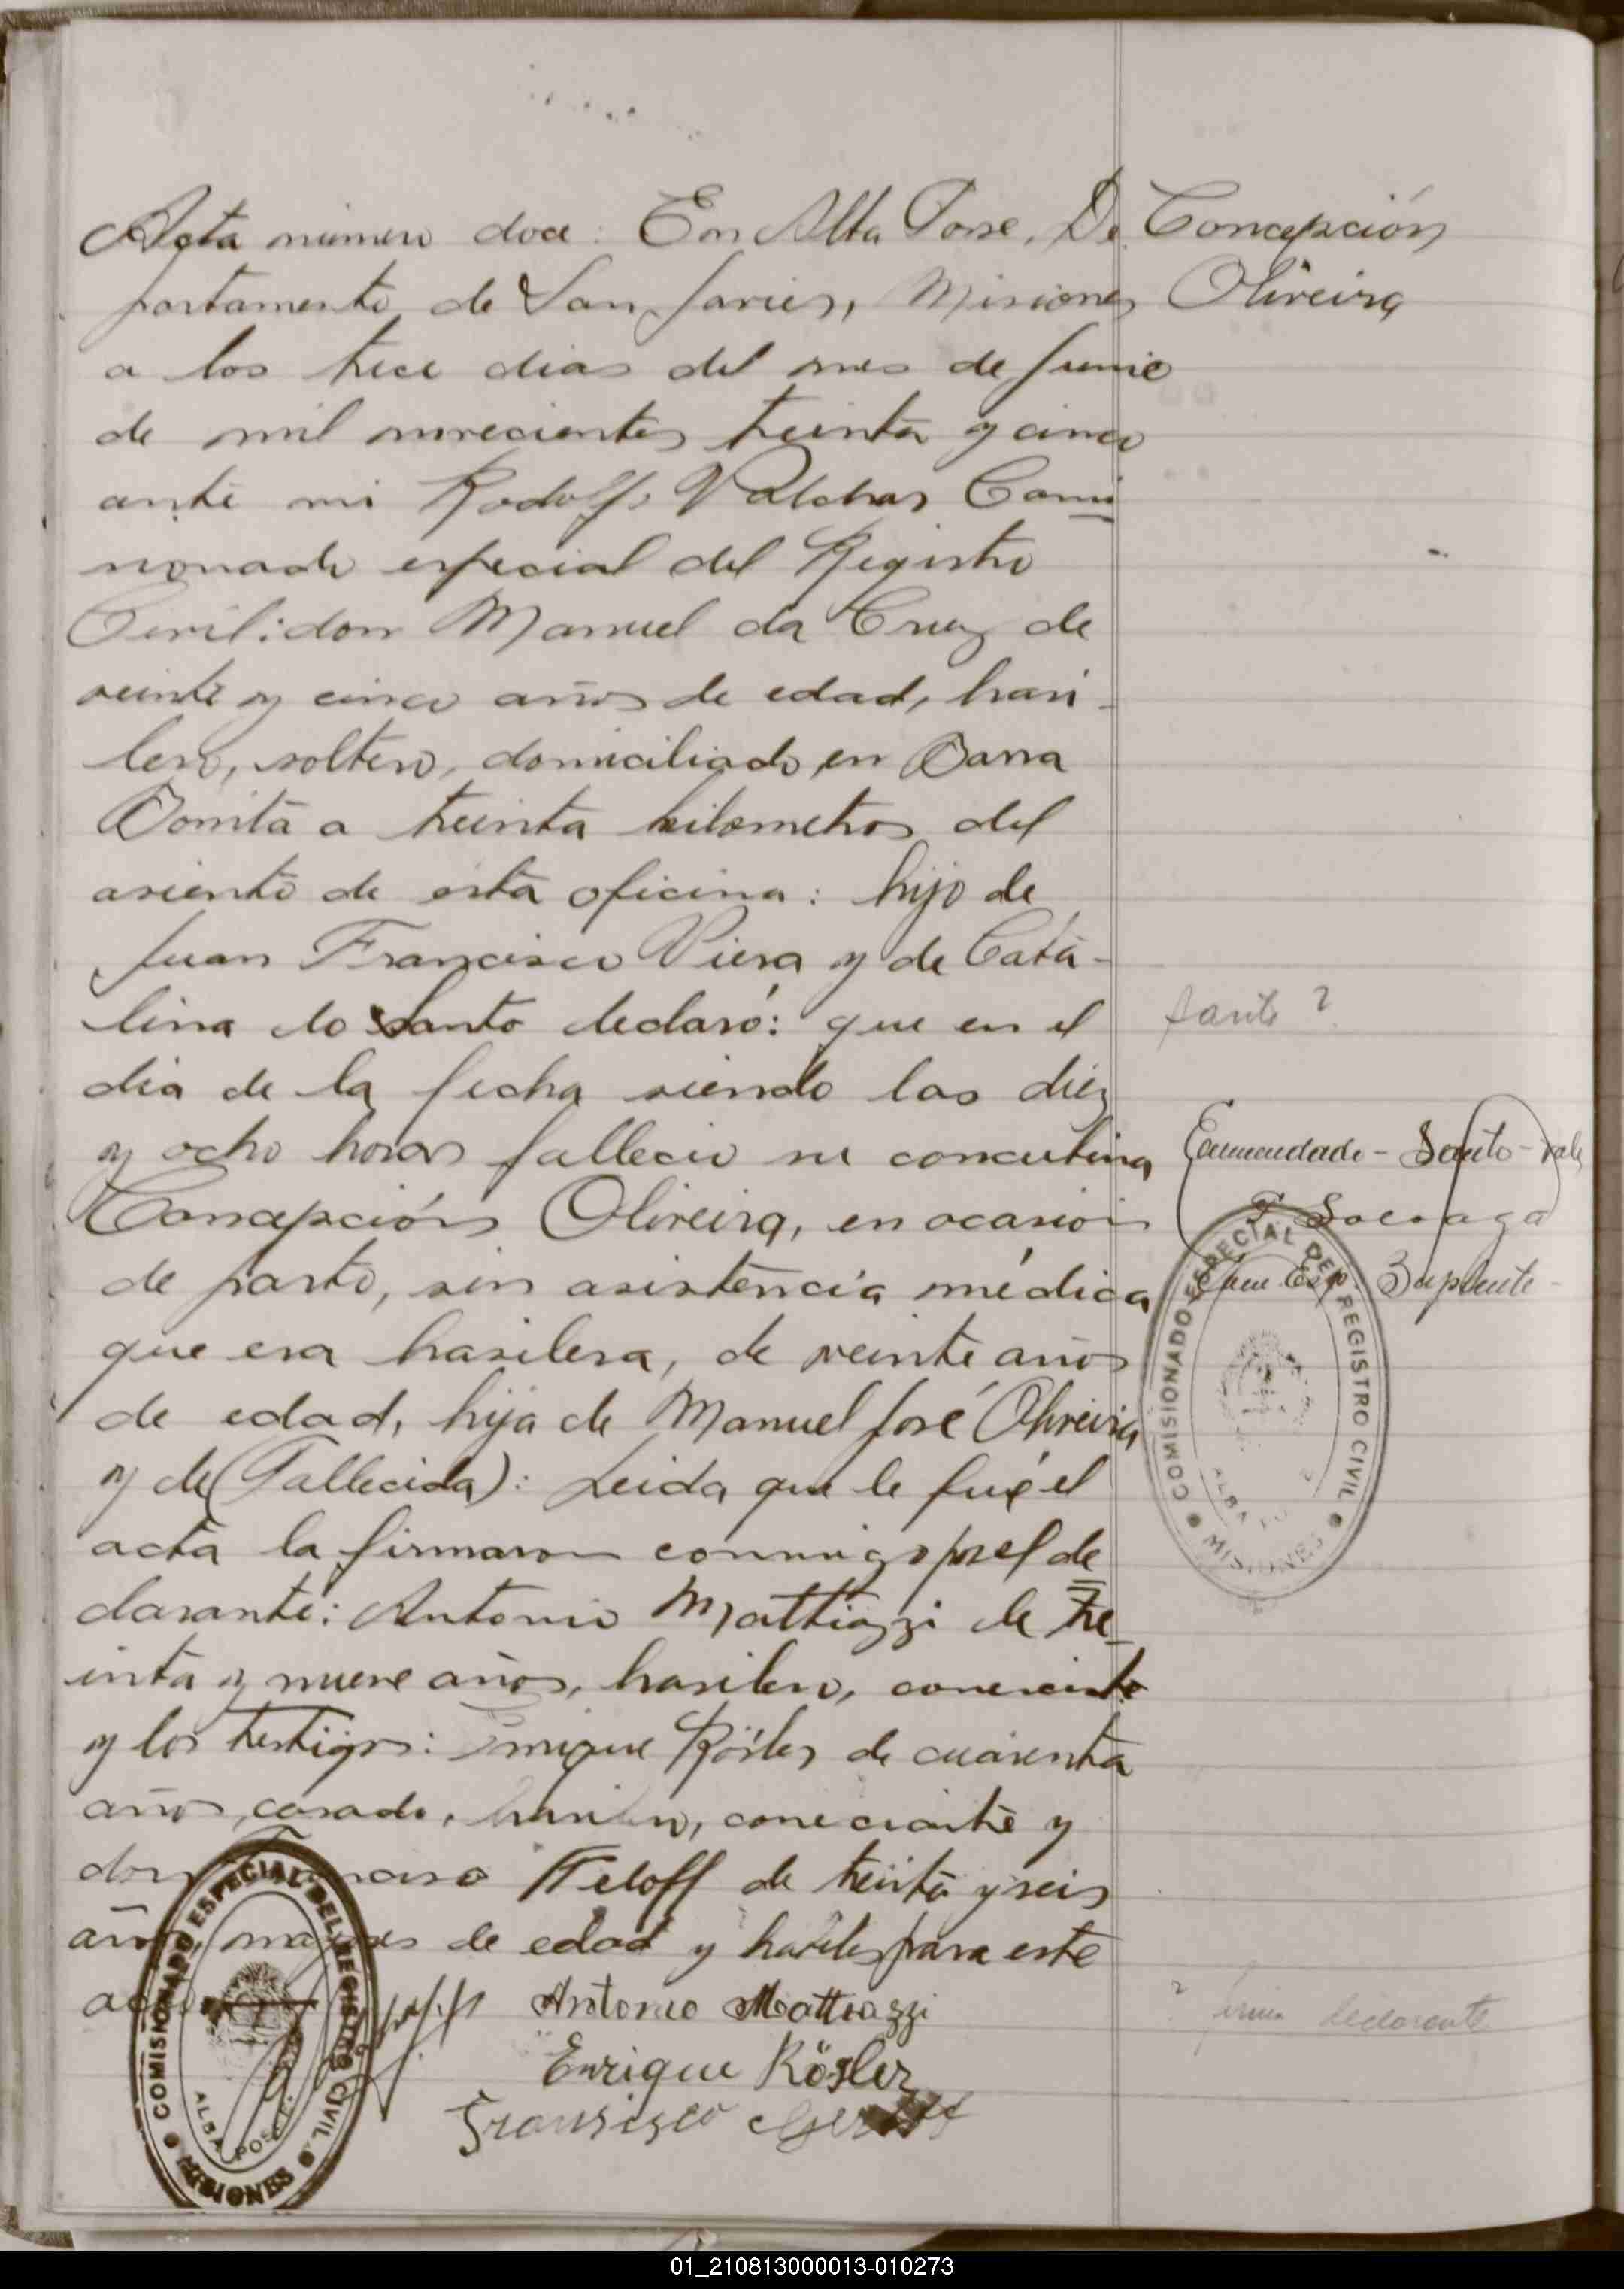 Acta número doce: En Alba Posse, De
partamento de San Javier, Misiones
a los trece dias del mes de Junio
de mil novecientos treinta y cinco
ante mi Rodolfo Comi
sionado especial del Registro
Civil: don Manuel da Cruz de
veinte y cinco años de edad, brasi-
lero, soltero, domiciliado en Barra
Bonita a treinta kilometros del
asiento de esta oficina: hijo de
Juan Francisco Viera y de Cata-
lina do Santo declaró: que en el
dia de la fecha siendo las diez
y ocho horas fallecio su concubina
Concepción Olireira, en ocasion
de parto, sin asistencia médica
que era brasilera, de veinte años
de edad, hija de Manuel José Olireira
y de (Fallecida): Leida que le fué el
acta la firmaron conmigo por el de
clarante: Antonio Mattiazzi de tre
inta y nueve años, brasilero, comerciante
y los testigos: Enrique Rösler de cuarenta
años, casado, comerciante y
don de treinta y seis
años, mayores de edad y habiles para este
acto
Antonio Mattiazzi
Enrique Rösler
Fransisco
Concepción
Olireira
Santo ?
Enmendado - Santo - vale
Suplente -
COMISIONADO ESPECIAL DEL REGISTRO CIVIL
ALBA POSSE
MISIONES
? firma declarante
COMISIONADO ESPECIAL DEL REGISTRO CIVIL
ALBA POSSE
MISIONES
01_210813000013-010273